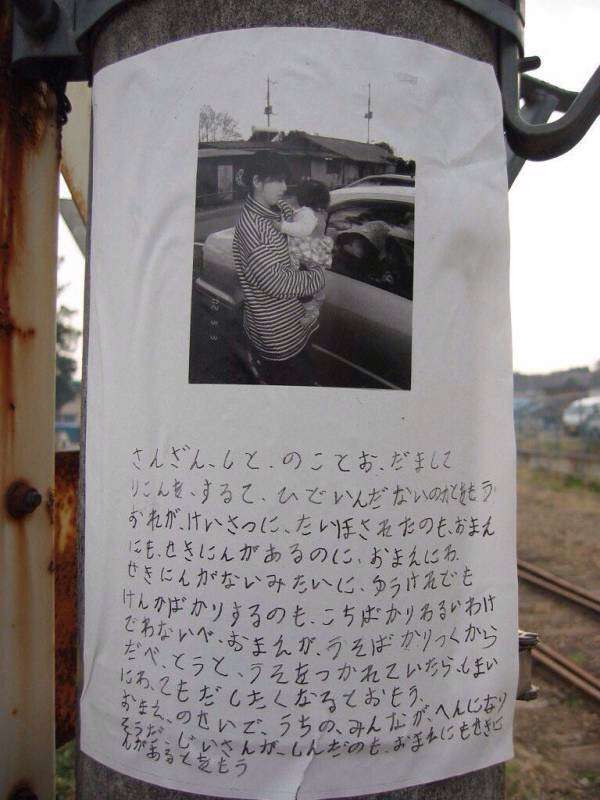 さんざん、しと、のことお、だまして
りこんを、するて、ひでいんだないのかとおもう
おれが、けいさつに、たいほされたのも、おまえ
にも、せきにんがあるのに、おまえにわ、
せきにんがないみたいに、ゆうけれでも
けんかばかりするのも、こちばかりわるいわけ
でわないべ、おまえが、うそばかりつくから
だべ、とうと、うそをつかれていたら、しまい
にわ、てもだしたくなるとおもう、
おまえ、のせいで、うちの、みんなが、へんになり
そうだ、じいさんが、しんだのも、おまえにもせきに
んがあるとをもう